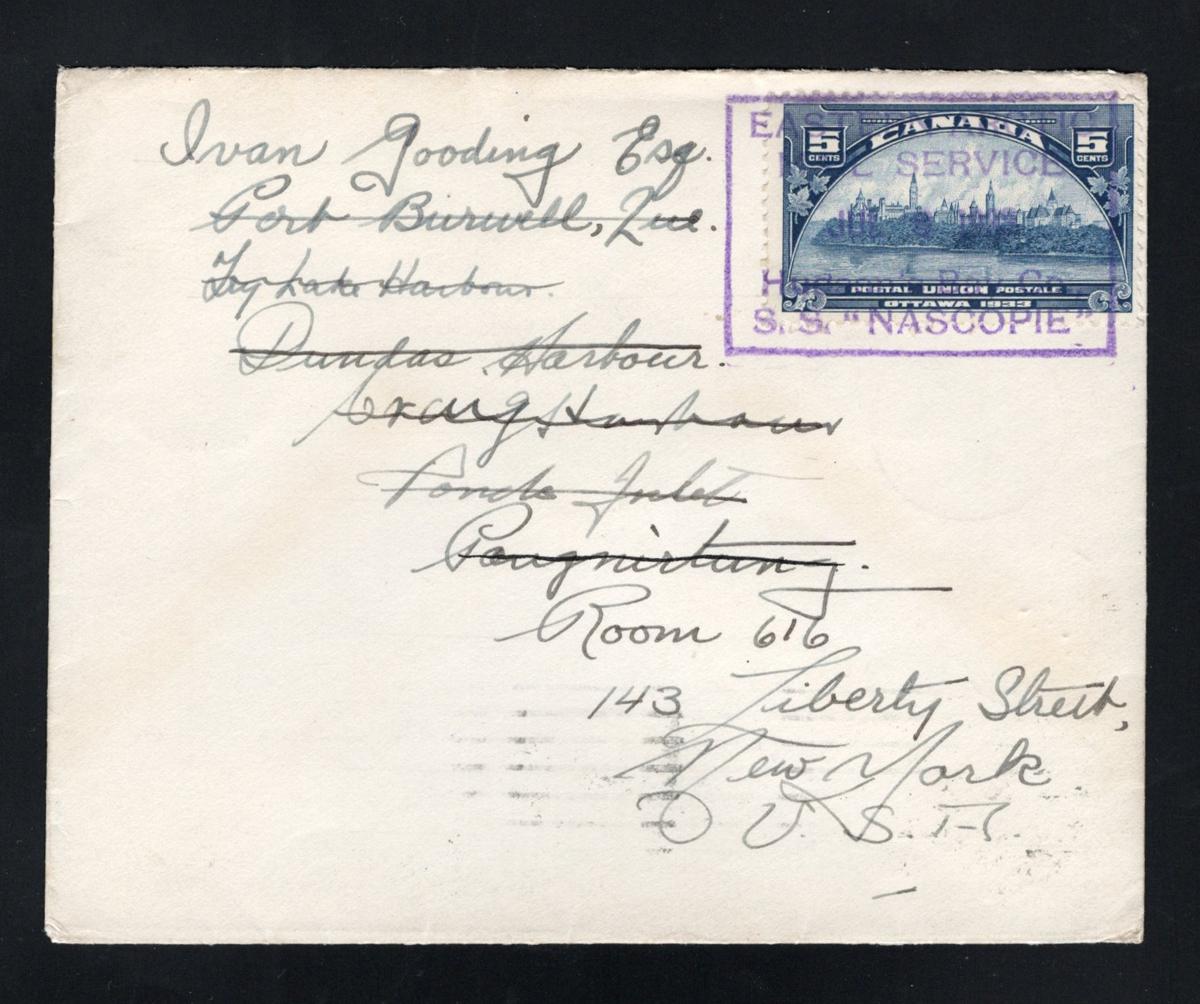 Ivan Gooding Esq.
Port Burwell, Que.
Lake Harbour.
Dundas Harbour.
Craig Harbour
Ponds Inlet
Pangnirtung.
Room 616
143 Liberty Street,
New York
U. S. A.
EAST
SERVICE
JUL 9
Hudson's Bay Co.
S. S. "NASCOPIE"
CANADA
5 CENTS
5 CENTS
POSTAL UNION POSTALE
OTTAWA 1933